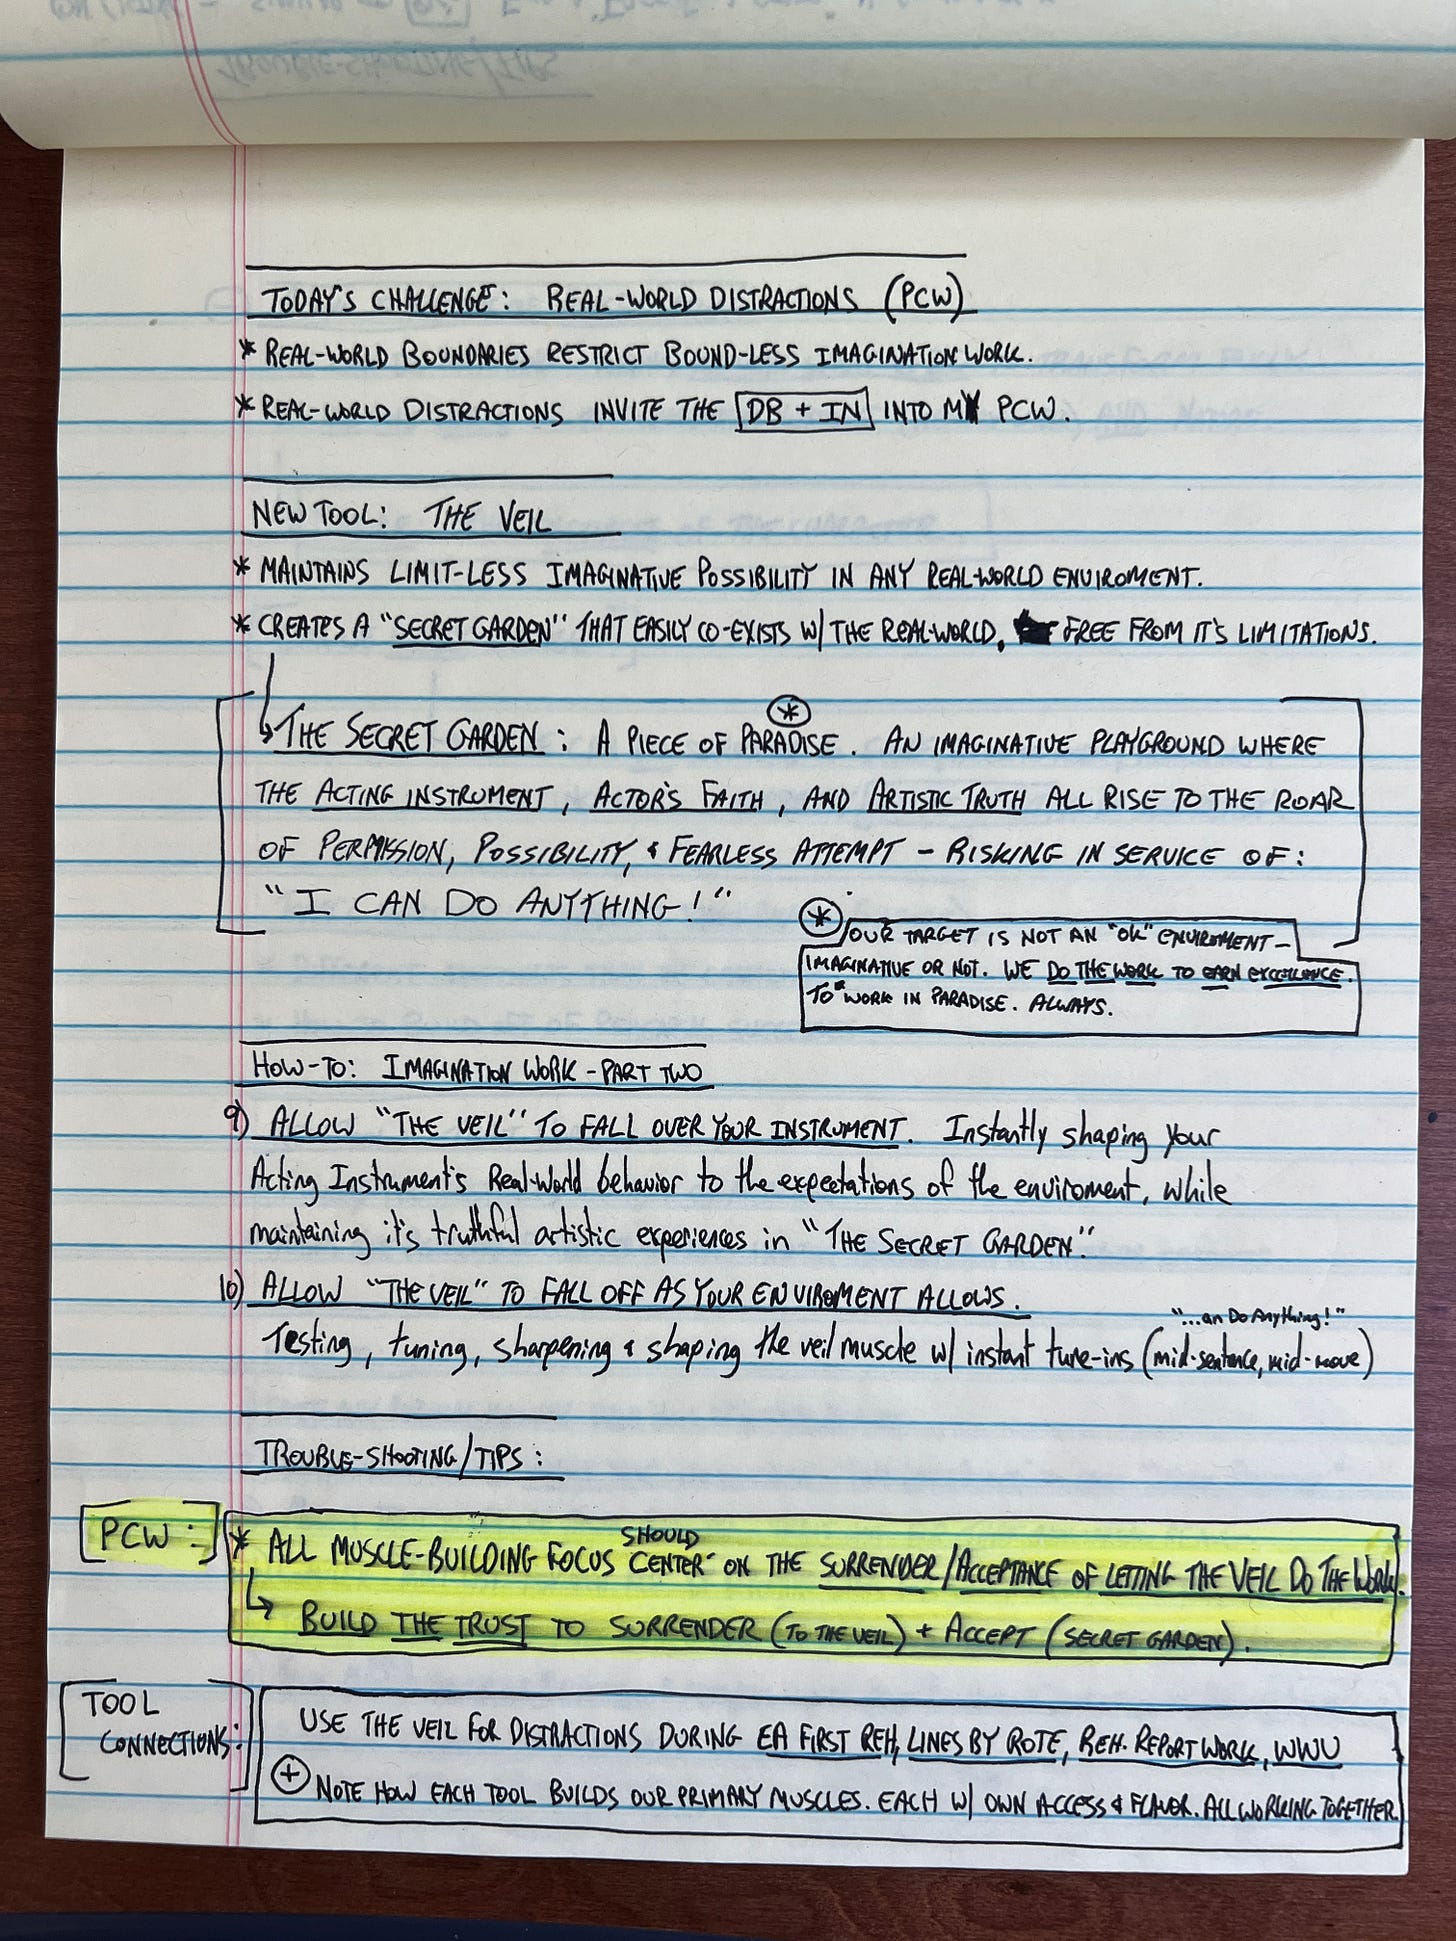 TROUBLE-SHOOTING/TIPS
TODAY'S CHALLENGE: REAL-WORLD DISTRACTIONS (PCW)
* REAL-WORLD BOUNDARIES RESTRICT BOUND-LESS IMAGINATION WORK.
* REAL-WORLD DISTRACTIONS INVITE THE DB + IN INTO MY PCW.
NEW TOOL: THE VEIL
* MAINTAINS LIMIT-LESS IMAGINATIVE POSSIBILITY IN ANY REAL-WORLD ENVIROMENT.
* CREATES A "SECRET GARDEN" THAT EASILY CO-EXISTS W/ THE REAL-WORLD, FREE FROM IT'S LIMITATIONS.
THE SECRET GARDEN: A PIECE OF PARADISE*. AN IMAGINATIVE PLAYGROUND WHERE
THE ACTING INSTRUMENT, ACTOR'S FAITH, AND ARTISTIC TRUTH ALL RISE TO THE ROAR
OF PERMISSION, POSSIBILITY, & FEARLESS ATTEMPT - RISKING IN SERVICE OF:
"I CAN DO ANYTHING!"
* OUR TARGET IS NOT AN "OK" ENVIROMENT -
IMAGINATIVE OR NOT. WE DO THE WORK TO EARN EXCELLENCE.
TO WORK IN PARADISE. ALWAYS.
HOW-TO: IMAGINATION WORK - PART TWO
9) ALLOW "THE VEIL" TO FALL OVER YOUR INSTRUMENT. Instantly shaping your
Acting Instrument's Real-World behavior to the expectations of the enviroment, while
maintaining it's truthful artistic experiences in "THE SECRET GARDEN."
10) ALLOW "THE VEIL" TO FALL OFF AS YOUR ENVIROMENT ALLOWS.
"...an Do Anything!"
Testing, tuning, sharpening & shaping the veil muscle w/ instant tune-ins (mid-sentence, mid-move)
TROUBLE-SHOOTING/TIPS:
PCW: * ALL MUSCLE-BUILDING FOCUS SHOULD CENTER ON THE SURRENDER/ACCEPTANCE OF LETTING THE VEIL DO THE WORK.
BUILD THE TRUST TO SURRENDER (TO THE VEIL) + ACCEPT (SECRET GARDEN).
TOOL CONNECTIONS: USE THE VEIL FOR DISTRACTIONS DURING EA FIRST REH, LINES BY ROTE, REH. REPORT WORK, WWU
+ NOTE HOW EACH TOOL BUILDS OUR PRIMARY MUSCLES. EACH W/ OWN ACCESS & FLAVOR. ALL WORKING TOGETHER.